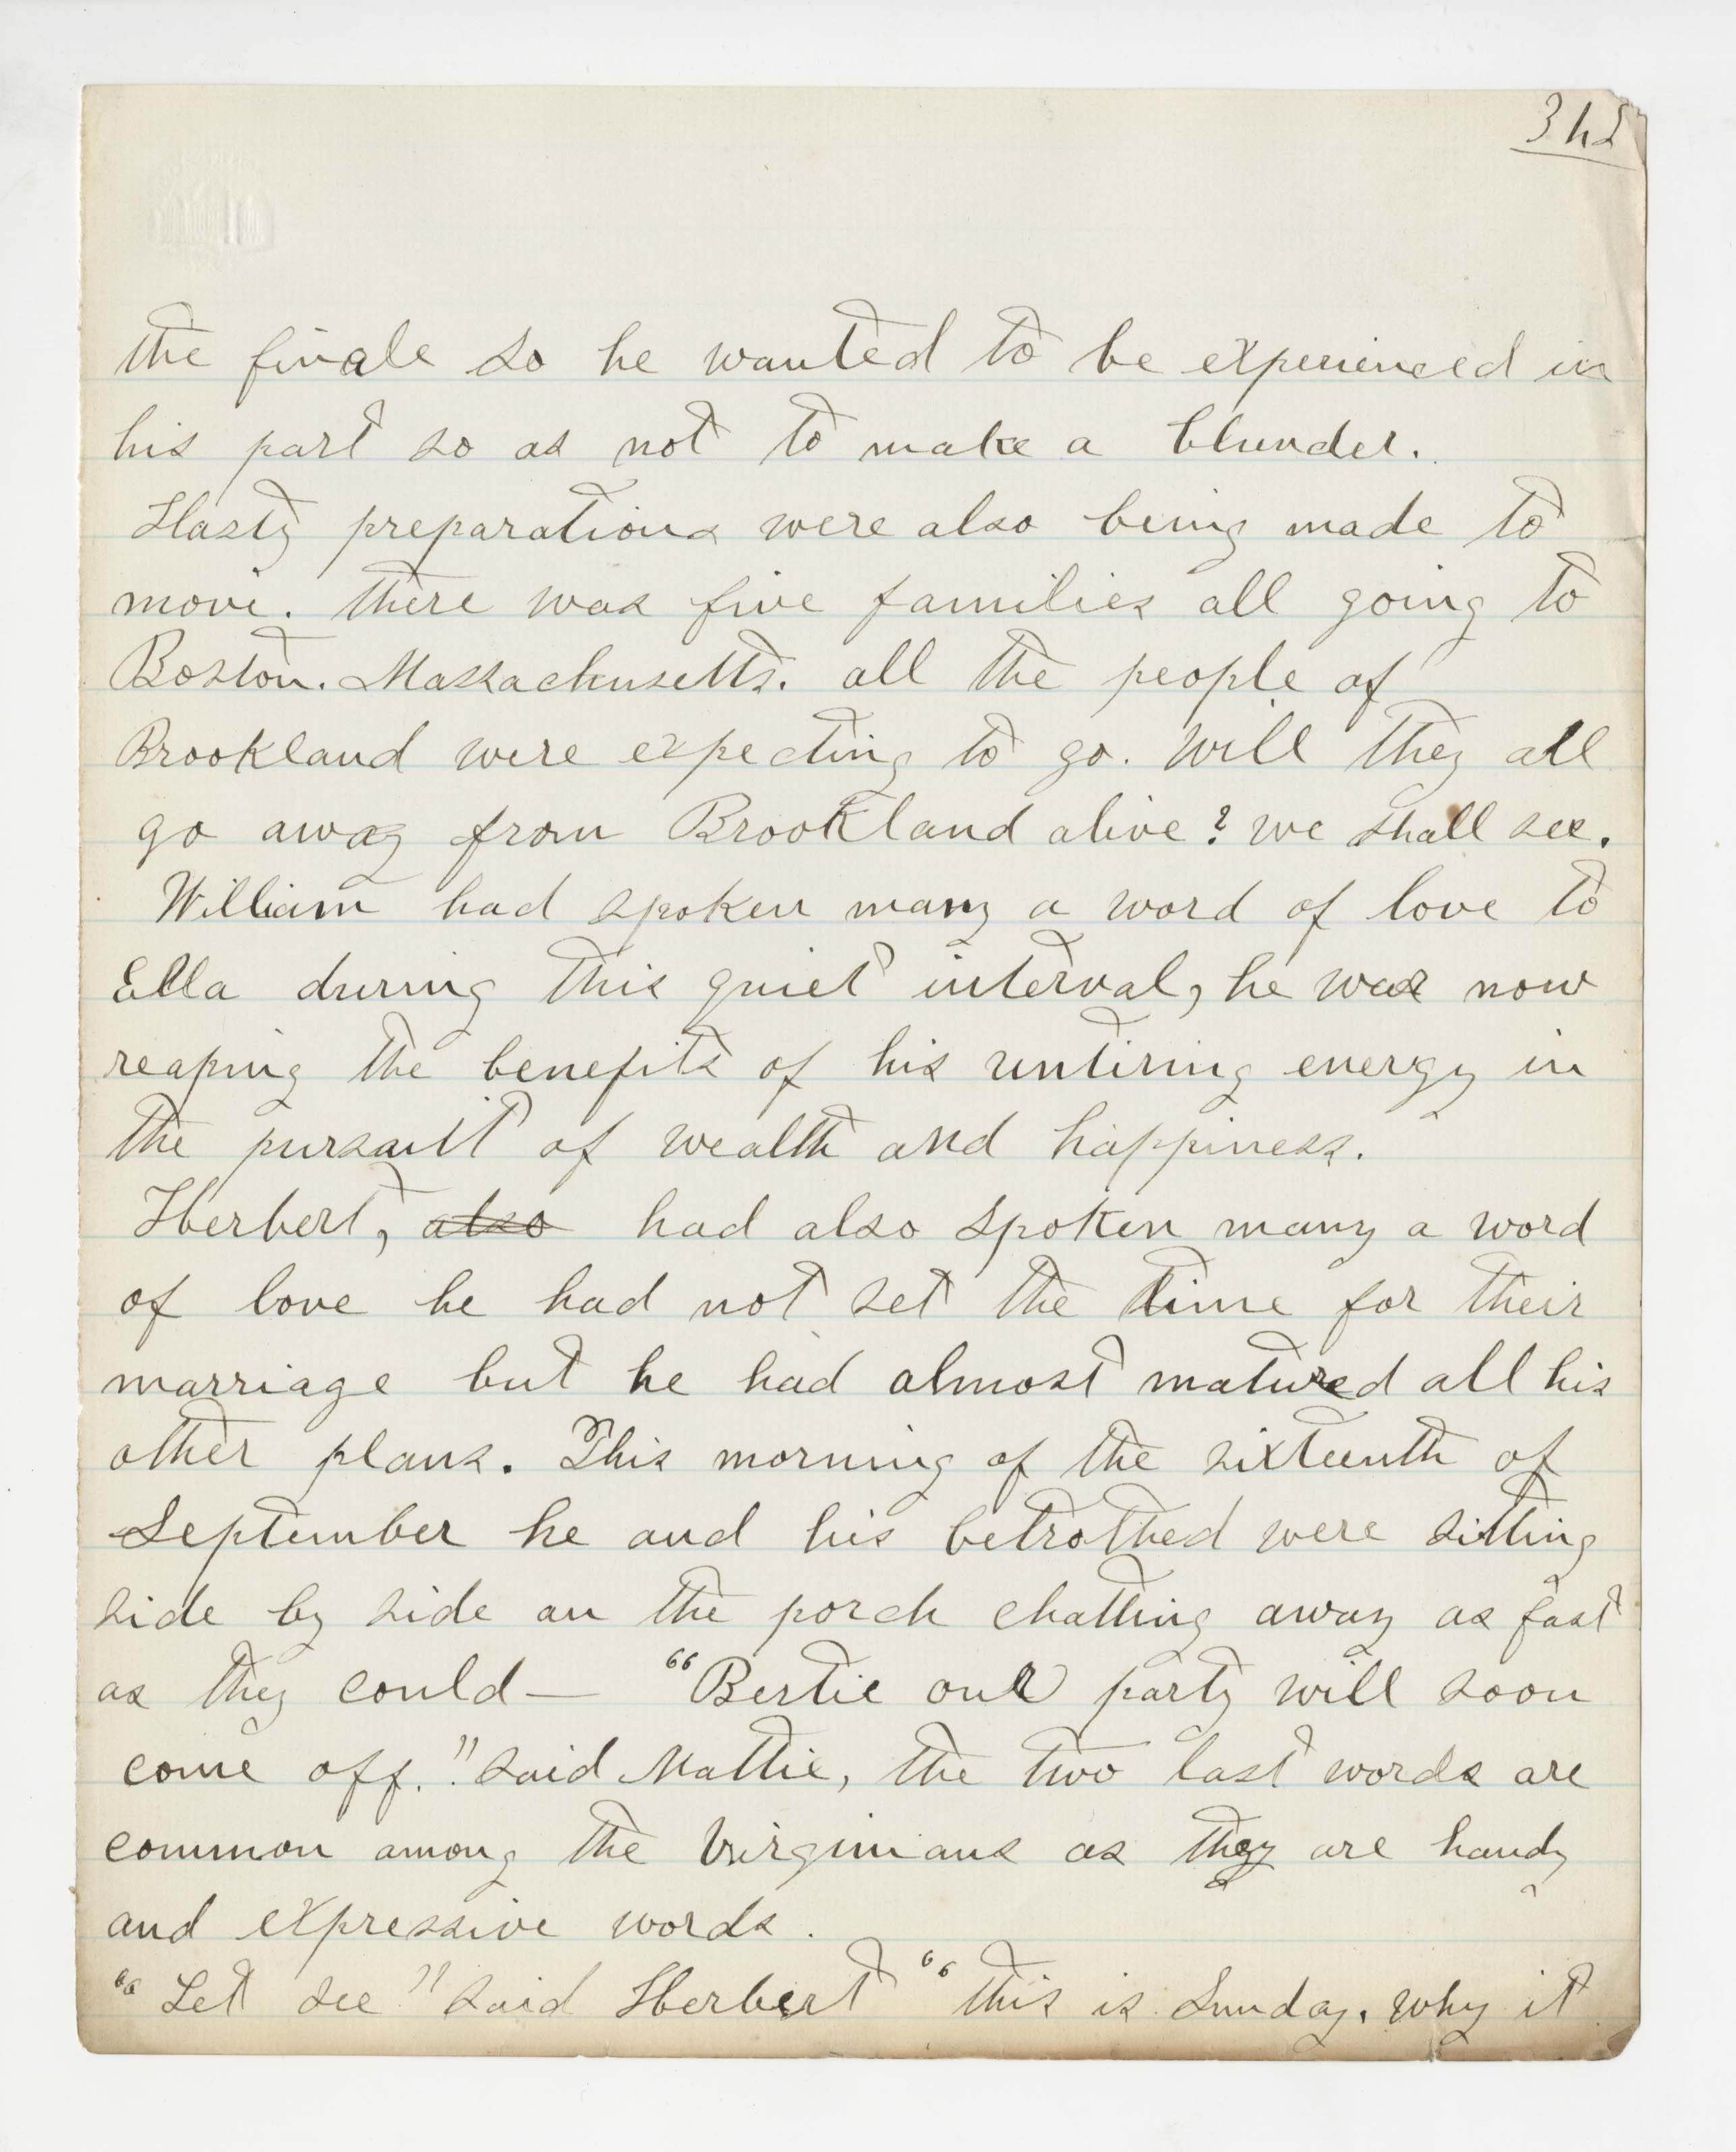 345
the finale so he wanted to be experienced in
his part so as not to make a blunder.
Hasty preparations were also being made to
move. there was five families all going to
Boston. Massachusetts. all the people of
Brookland were expecting to go. Will they all
go away from Brookland alive? we shall see.
William had spoken many a word of love to
Ella during this quiet interval, he was now
reaping the benefits of his untiring energy in
the pursuit of wealth and happiness.
Herbert, also had also spoken many a word
of love he had not set the time for their
marriage but he had almost matured all his
other plans. This morning of the sixteenth of
September he and his betrothed were sitting
side by side on the porch chatting away as fast
as they could — "Bertie our party will soon
come off." said Mattie, the two last words are
common among the Virginians as they are handy
and expressive words.
"Let see" said Herbert "this is Sunday. why it